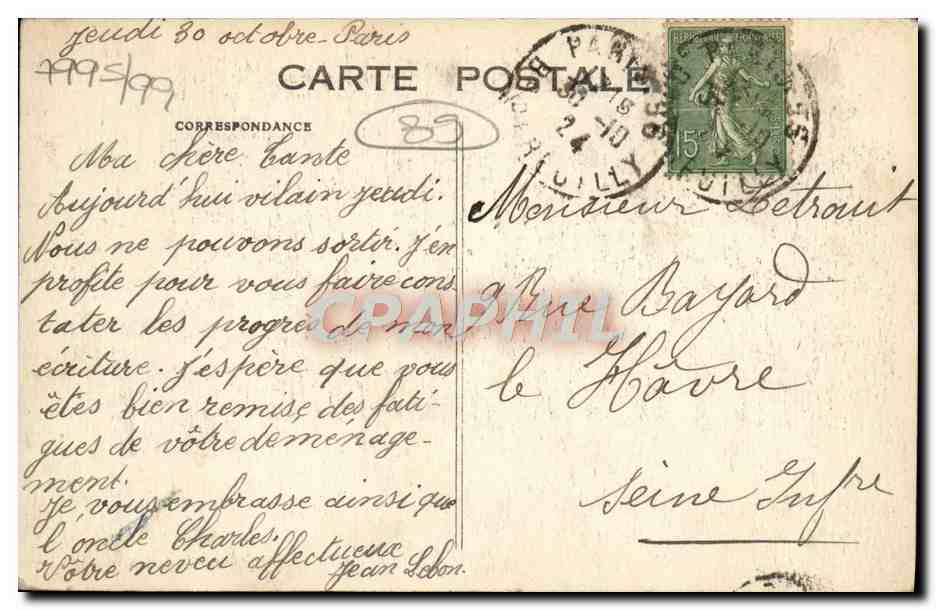 Jeudi 30 octobre - Paris
7995/99
CARTE POSTALE
CORRESPONDANCE
89
Ma chère Tante
Aujourd'hui vilain jeudi.
Nous ne pouvons sortir. J'en
profite pour vous faire cons
tater les progrès de mon
écriture. J'espère que vous
êtes bien remise des fati-
gues de vôtre déménage-
ment.
Je vous embrasse ainsi que
l'oncle Charles.
Vôtre neveu affectueux
Jean Lebon.
PARIS
30 -10
24
REUILLY
15c
Monsieur Letrouit
9 Rue Bayard
le Hâvre
Seine Infre
CPAPHIL